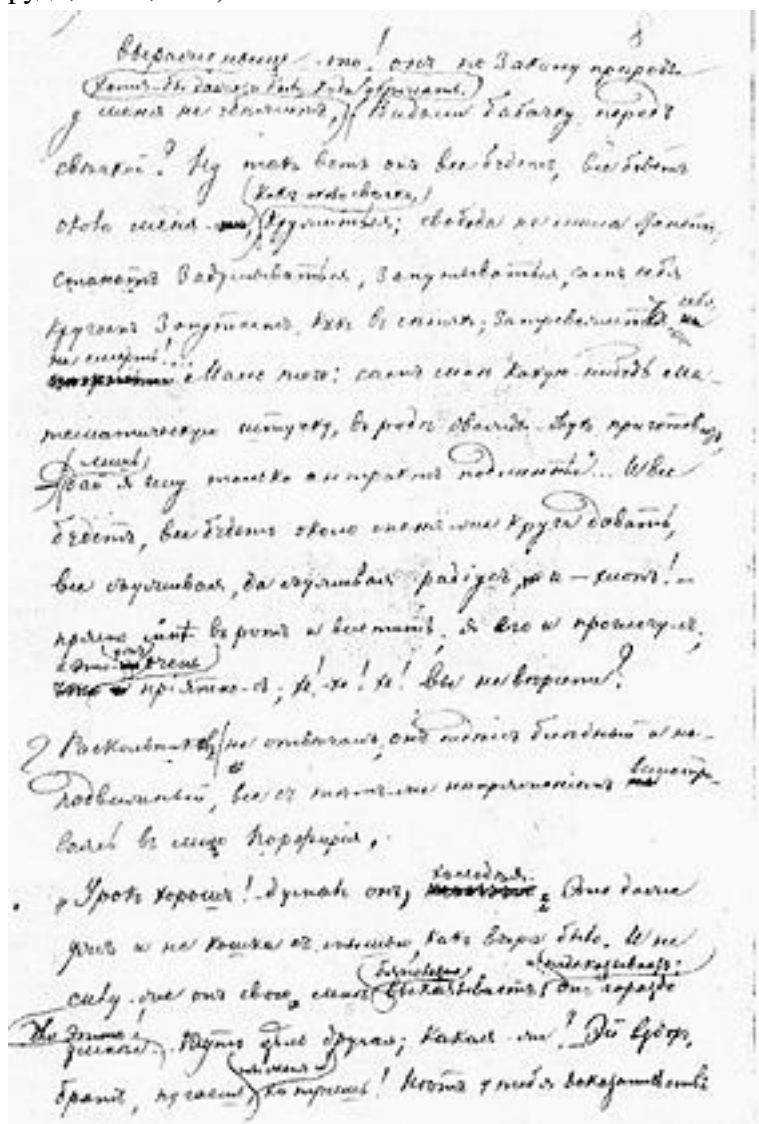 Выраженьице-то! онъ по Закону природы
хотя-бы даже и было куда убежать.
у меня не убежитъ, Видали бабочку передъ
свѣчкой? Ну такъ вотъ онъ все будетъ, все будетъ
какъ около свѣчки,
около меня кружиться; свобода не мила станетъ,
станетъ задумываться, запутываться, самъ себя
кругомъ запутаетъ, какъ въ сѣтяхъ, затревожитъ себя
на смерть!..
Мало того: самъ мнѣ какую-нибудь ма-
тематическую штучку, въ родѣ дважды-двухъ приготовитъ,
лишь
дай я ему только антрактъ подлиннѣе... И все
будетъ, все будетъ около меня-же круги давать,
все съуживая, да съуживая радіусъ, и — хлопъ! —
прямо мнѣ въ ротъ и влетитъ, я его и проглочу-съ,
а это ужъ очень
пріятно-съ; хе! хе! хе! Вы не вѣрите?
Раскольниковъ не отвѣчалъ, онъ сидѣлъ блѣдный и не-
подвижный, все съ тѣмъ-же напряженіемъ всматри-
ваясь въ лицо Порфирія.
„Урокъ хорошъ! думалъ онъ, холодѣя. Это даже
ужъ и не кошка съ мышью, какъ вчера было. И не
безполезно и подсказываетъ:
силу-же онъ свою мнѣ выказываетъ онъ гораздо
для этого
умнѣе. Тутъ цѣль другая; какая-же? Эй вздоръ,
братъ, пугаешь меня и хитришь! Нѣтъ у тебя доказательствъ